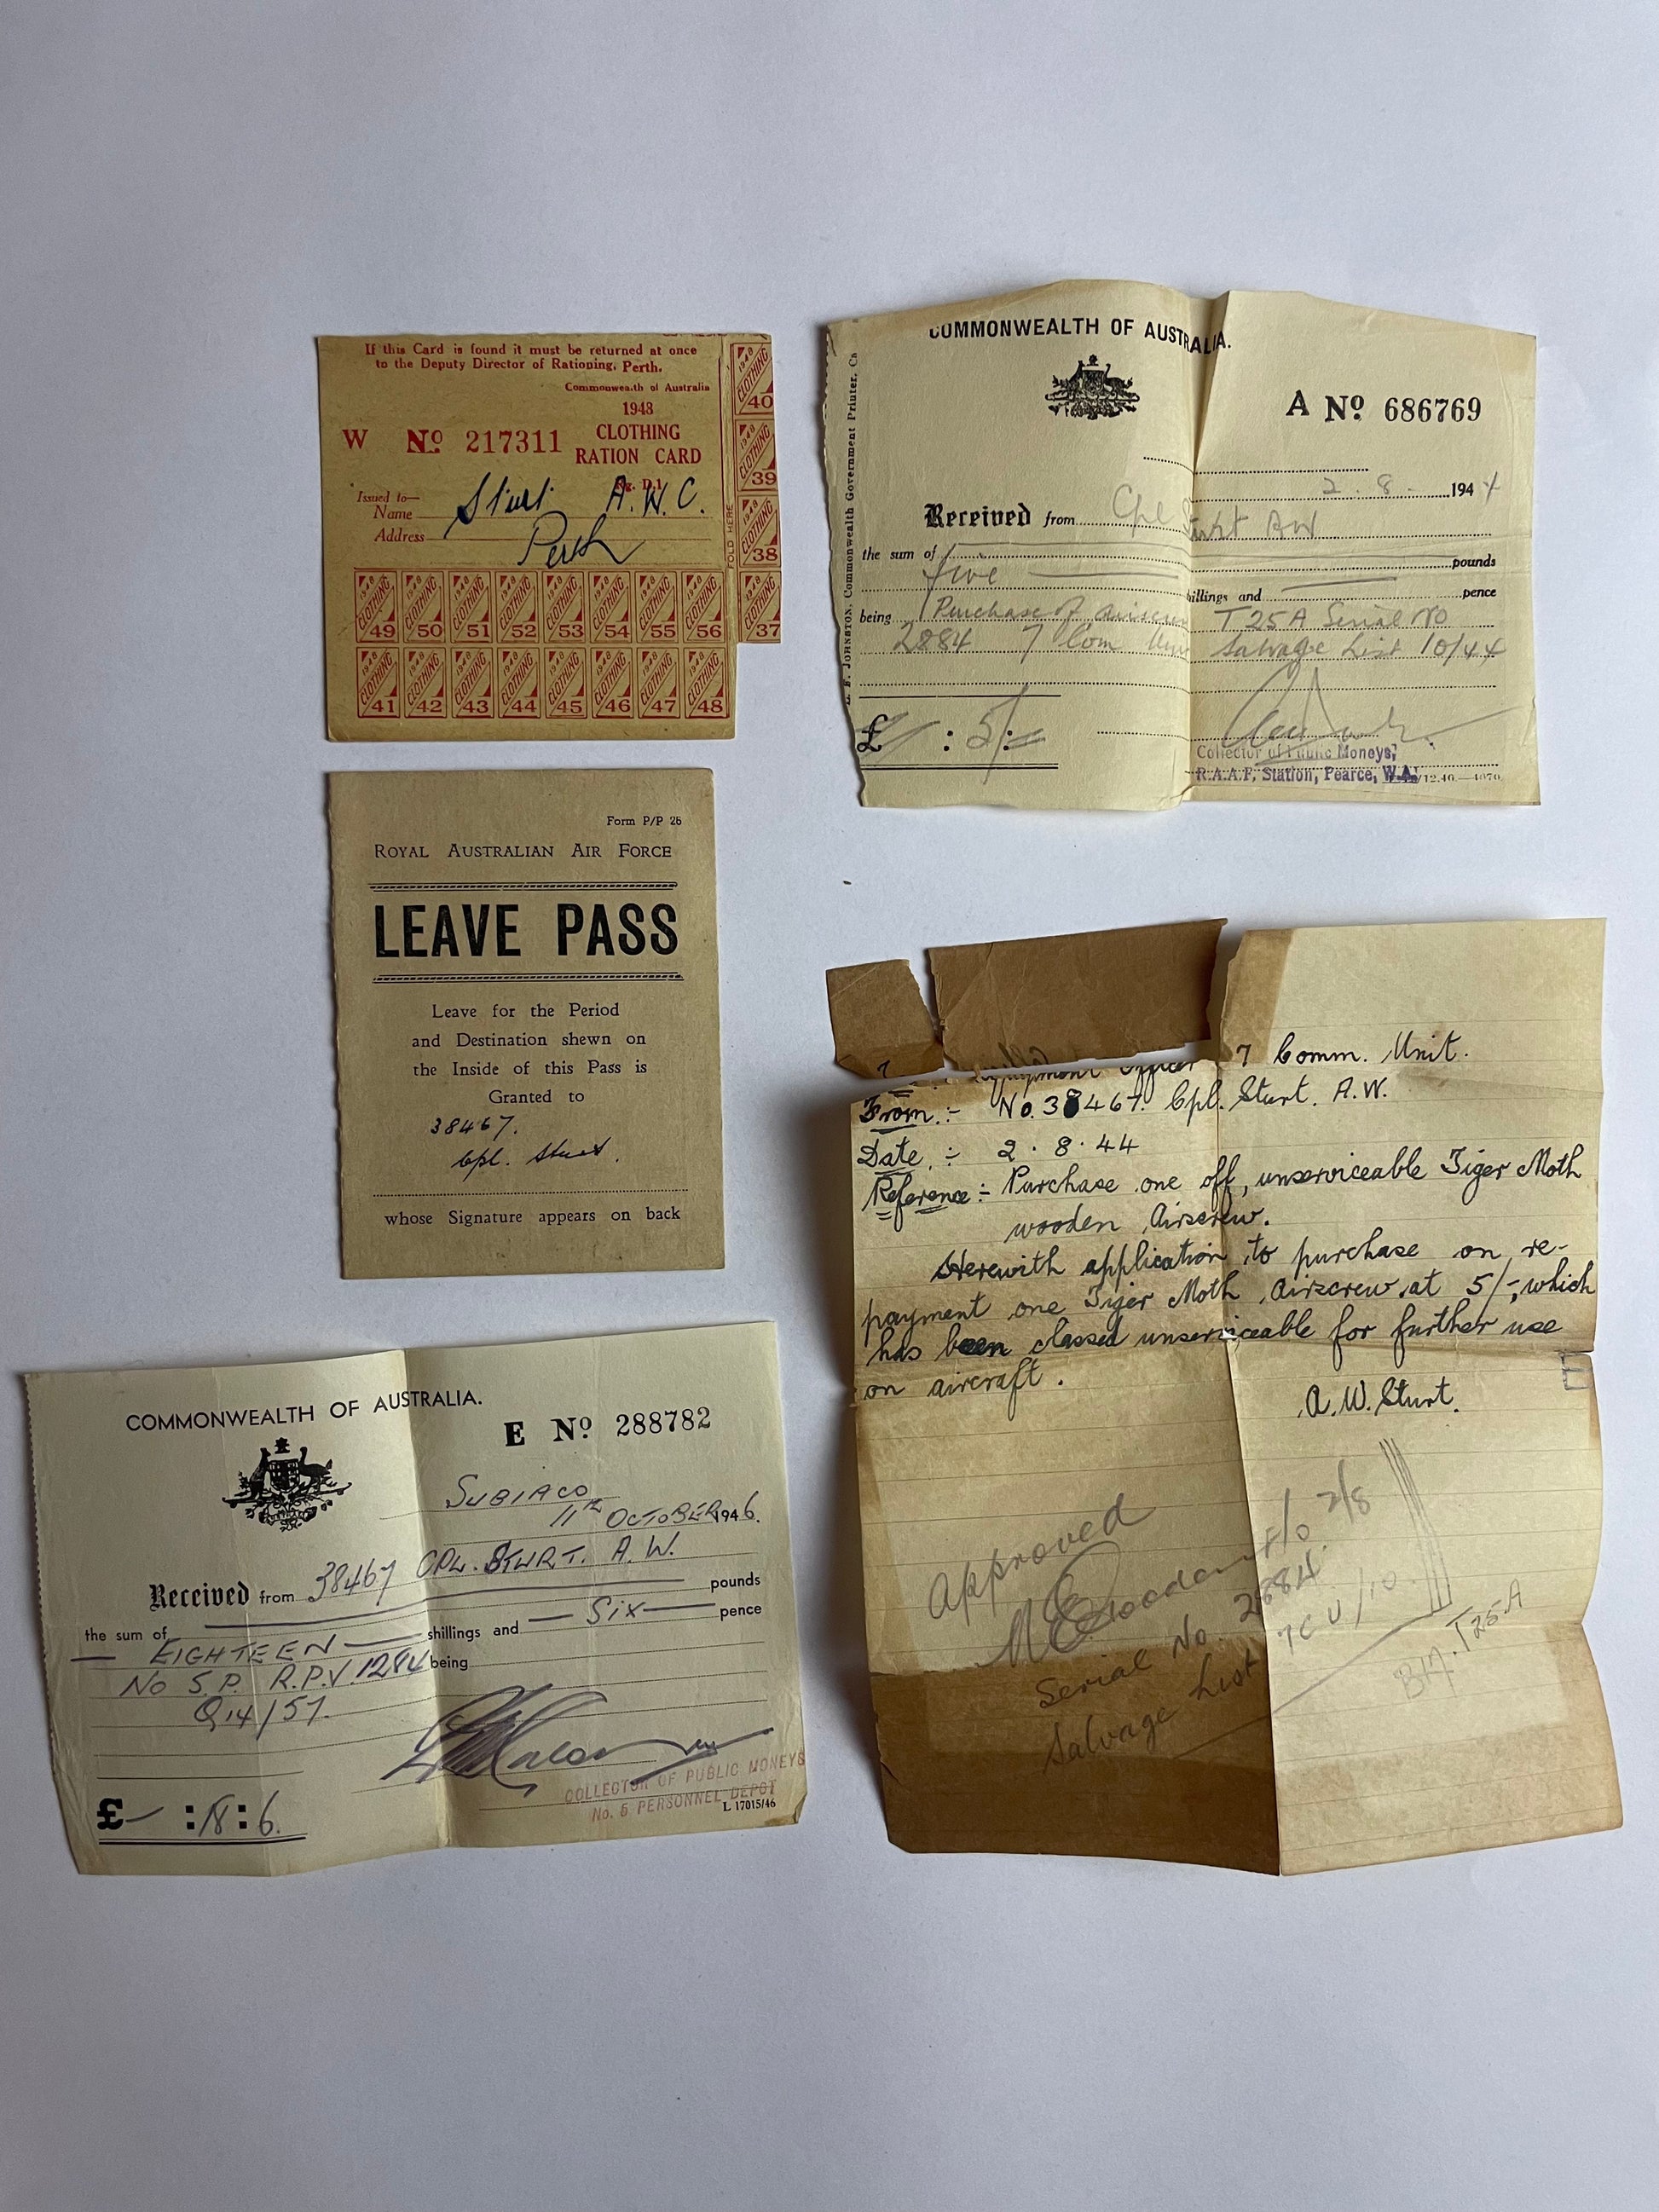 If this Card is found it must be returned at once
to the Deputy Director of Rationing, Perth.
Commonwealth of Australia
1948
W No 217311 CLOTHING
RATION CARD
Issued to—
Name Sturt A. W. C.
Address Perth
FOLD HERE
1948 CLOTHING 40
1948 CLOTHING 39
1948 CLOTHING 38
1948 CLOTHING 37
1948 CLOTHING 49 1948 CLOTHING 50 1948 CLOTHING 51 1948 CLOTHING 52 1948 CLOTHING 53 1948 CLOTHING 54 1948 CLOTHING 55 1948 CLOTHING 56
1948 CLOTHING 41 1948 CLOTHING 42 1948 CLOTHING 43 1948 CLOTHING 44 1948 CLOTHING 45 1948 CLOTHING 46 1948 CLOTHING 47 1948 CLOTHING 48
COMMONWEALTH OF AUSTRALIA.
A No 686769
2 . 8 . 1944
Received from Cpl Sturt AW
the sum of pounds
five shillings and pence
being Purchase of airscrew T25A Serial No
2884 7 Com Salvage List 10/44
£ : 5/- :
Collector of Public Moneys,
R.A.A.F, Station, Pearce, W.A. /12.40.—4070
JOHNSTON, Commonwealth Government Printer,
Form P/P 26
ROYAL AUSTRALIAN AIR FORCE
LEAVE PASS
Leave for the Period
and Destination shewn on
the Inside of this Pass is
Granted to
38467.
Cpl. Sturt.
whose Signature appears on back
Officer 7 Comm. Unit.
From :- No. 38467. Cpl. Sturt. A.W.
Date. :- 2 . 8 . 44
Reference :- Purchase one off, unserviceable Tiger Moth
wooden Airscrew.
Herewith application to purchase on re-
payment one Tiger Moth Airscrew at 5/-, which
has been classed unserviceable for further use
on aircraft.
A.W. Sturt.
Approved
F/O 2/8
Serial No. 2884
Salvage List 7CU/10.
T25A
COMMONWEALTH OF AUSTRALIA.
E No 288782
SUBIACO
11TH OCTOBER 1946.
Received from 38467 CPL. STURT. A. W.
pounds
the sum of EIGHTEEN shillings and SIX pence
No S.P. R.P.V. 1284 being
Q14/57.
COLLECTOR OF PUBLIC MONEYS
No. 5 PERSONNEL DEPOT
L 17015/46
£— : 18 : 6.